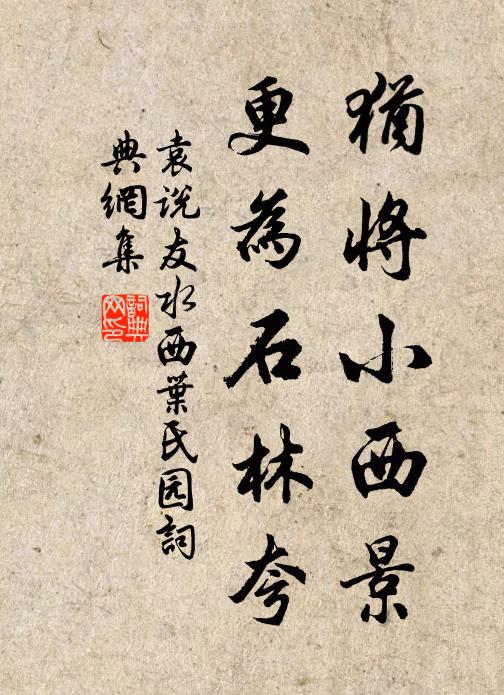 猶將小西景
更為石林夸
袁说友水西葉氏园詞
典網集
詞典网印